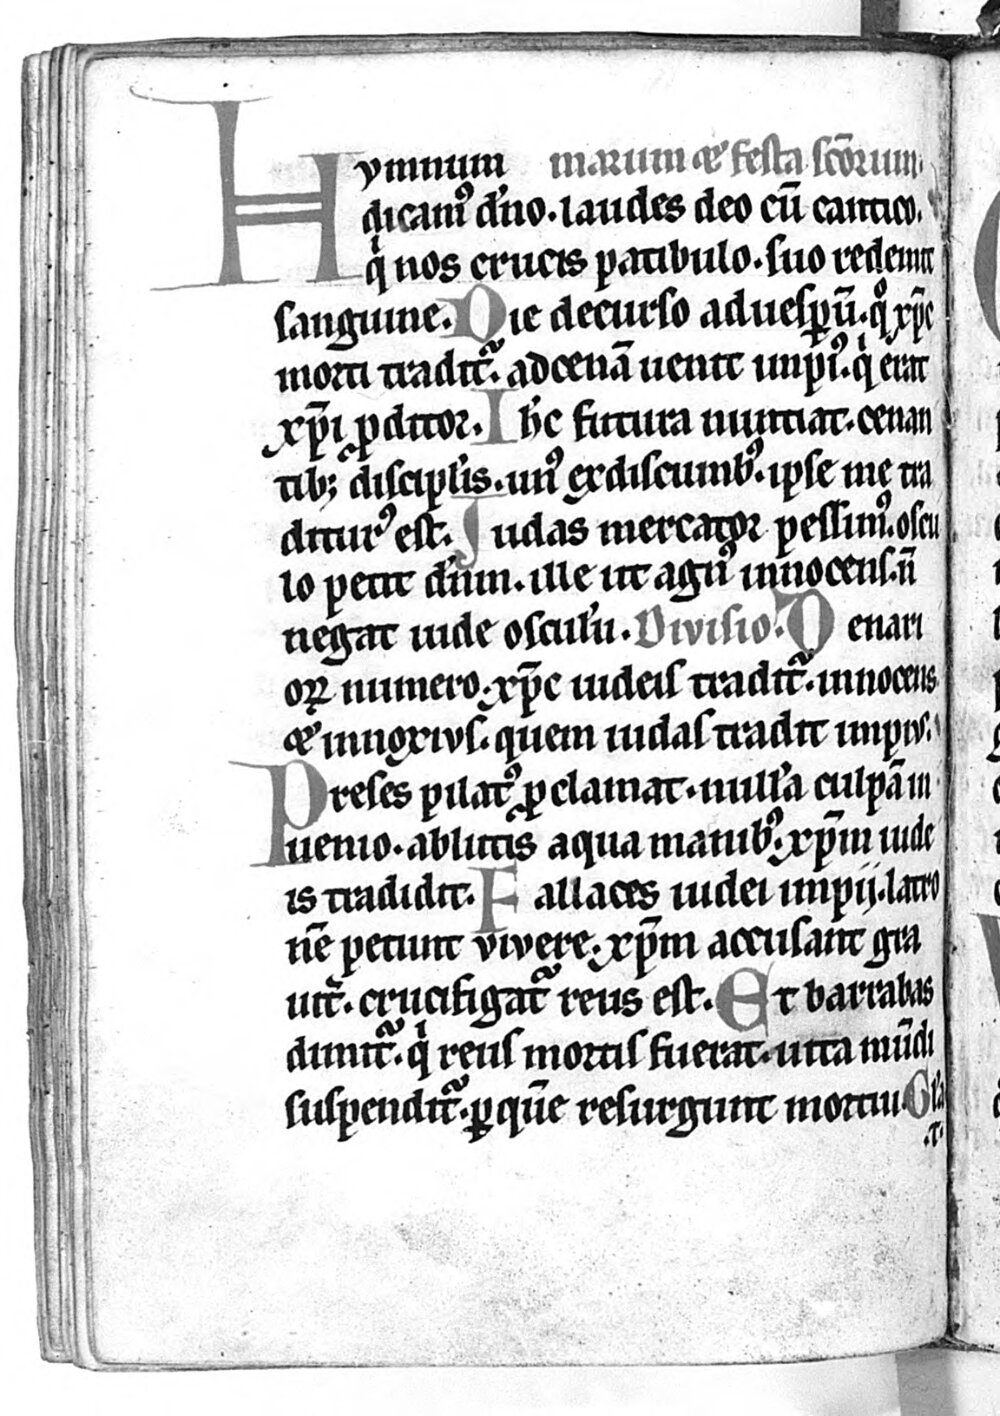 Hymnum marum & festa sc̄orum.
dicam᷒ dn̄o. laudes deo cū cantico.
qͥ nos crucis patibulo. suo redemit
sanguine. Die decurso aduesp̄ū. qͦ xp̄c
morti tradit᷑. adcenā uenit impi᷒. qͥ erat
xp̄i ꝓditor. Ih̄c futura nuntiat. cenan
tib; discipl̄is. un᷒ exdiscumb᷒. ipse me tra
ditur᷒ est. Judas mercator pessim᷒. oscu
lo petit dn̄m. ille ut agn᷒ innocens. n̄
negat iude oscul̄u. Divisio. Denari
oꝝ numero. xp̄c iudeis tradit᷑. innocens
& innoxius. quem iudas tradit impius.
Preses pilat᷒ ꝓclamat. null̄a culpā in
uenio. ablutis aqua manib᷒. xp̄m iude
is tradidit. Fallaces iudei impij. latro
nē petunt vivere. xp̄m accusant gra
uit̄. crucifigat᷑ reus est. Et barrabas
dimit᷑. qͥ reus mortis fuerat. uita mūdi
suspendit᷑. ꝑ quē resurgunt mortui. Gl̄a
.t.